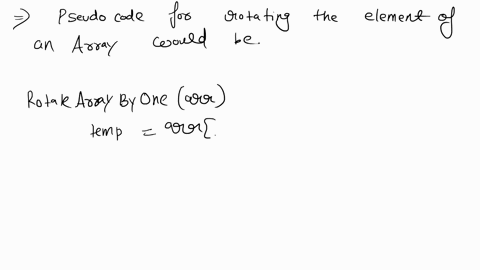 ⇒ Pseudo code for rotating the element of
an Array would be.
Rotate Array By One (arr)
temp = arr[